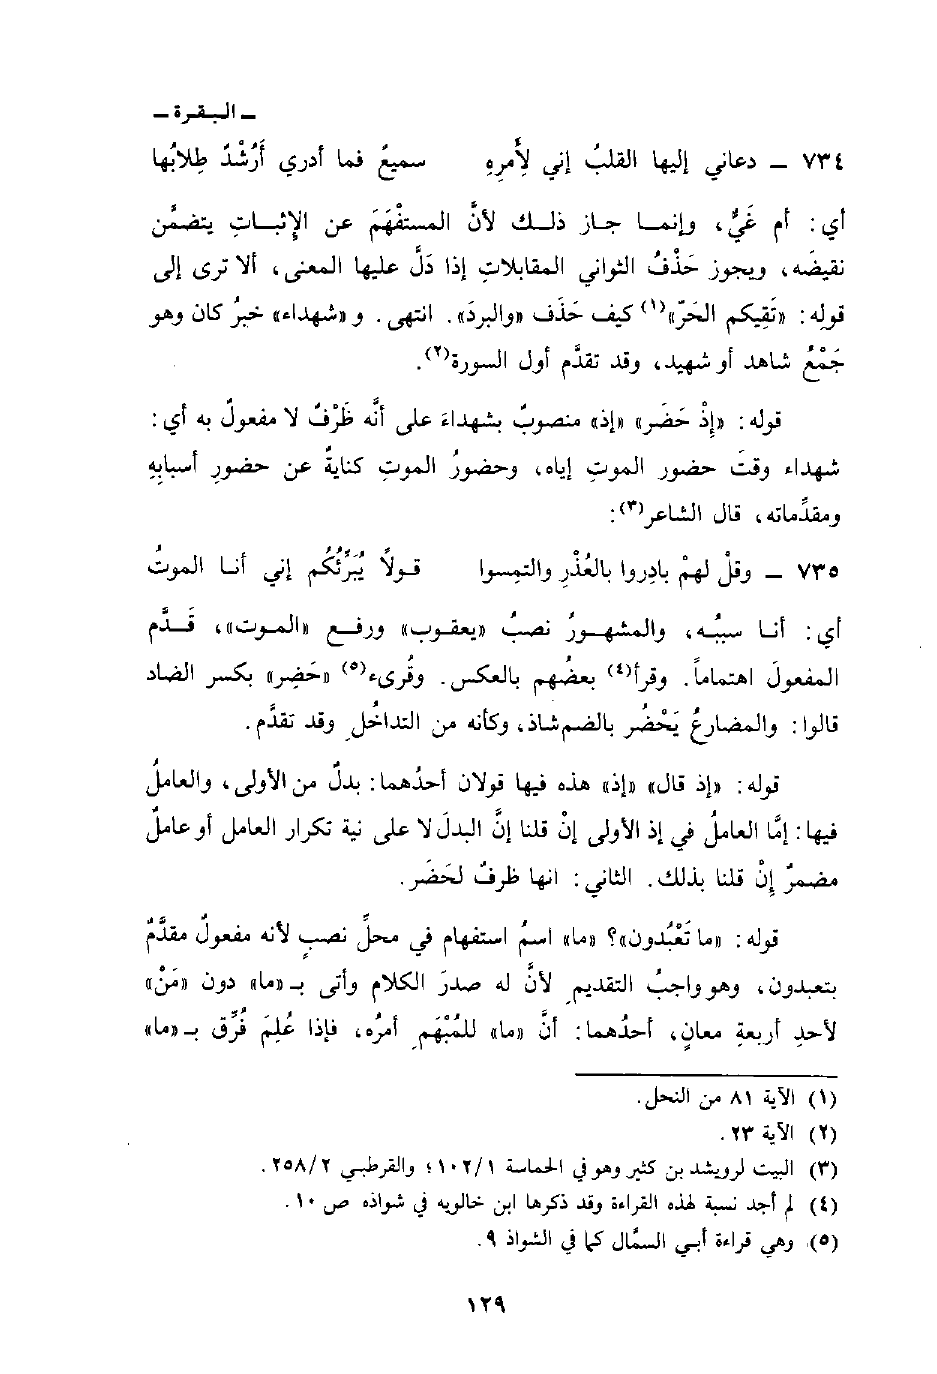 ـ البقرة ـ
٧٣٤ ـ دعاني إليها القلبُ إني لِأَمرِهِ سميعٌ فما أدري أَرُشْدٌ طِلابُها
أي: أم غَيٌّ، وإنما جاز ذلك لأنَّ المستفْهَمَ عن الإِثباتِ يتضمَّن
نقيضَه، ويجوز حَذْفُ الثواني المقابلاتِ إذا دَلَّ عليها المعنى، ألا ترى إلى
قولِه: «تَقِيكم الحَرّ»(١) كيف حَذَف «والبردَ». انتهى. و«شهداء» خبرُ كان وهو
جَمْعُ شاهد أو شهيد، وقد تقدَّم أول السورة(٢).
قوله: «إِذْ حَضَر» «إذ» منصوبٌ بشهداءَ على أنَّه ظَرْفٌ لا مفعولٌ به أي:
شهداء وقتَ حضور الموتِ إياه، وحضورُ الموتِ كنايةٌ عن حضورِ أسبابِهِ
ومقدِّماته، قال الشاعر(٣):
٧٣٥ ـ وقلْ لهمْ بادِروا بالعُذْرِ والتمِسوا قولاً يُبَرِّئُكُم إني أنا الموتُ
أي: أنا سببُه، والمشهورُ نصبُ «يعقوب» ورفع «الموت»، قَدَّم
المفعولَ اهتماماً. وقرأ(٤) بعضُهم بالعكس. وقُرىء(٥) «حَضِر» بكسر الضاد
قالوا: والمضارعُ يَحْضُر بالضم شاذ، وكأنه من التداخُلِ وقد تقدَّم.
قوله: «إذ قال» «إذ» هذه فيها قولان أحدُهما: بدلٌ من الأولى، والعاملُ
فيها: إمَّا العاملُ في إذ الأولى إنْ قلنا إنَّ البدلَ لا على نية تكرار العامل أو عاملٌ
مضمرٌ إِنْ قلنا بذلك. الثاني: انها ظرفٌ لحَضَر.
قوله: «ما تَعْبُدون»؟ «ما» اسمُ استفهام في محلِّ نصبٍ لأنه مفعولٌ مقدَّمٌ
بتعبدون، وهو واجبُ التقديمِ لأنَّ له صدرَ الكلام وأتى بـ«ما» دون «مَنْ»
لأحدِ أربعةِ معانٍ، أحدُهما: أنَّ «ما» للمُبْهَمِ أمرُه، فإذا عُلِمَ فُرِّق بـ«ما»
(١) الآية ٨١ من النحل.
(٢) الآية ٢٣.
(٣) البيت لرويشد بن كثير وهو في الحماسة ١٠٢/١؛ والقرطبي ٢٥٨/٢.
(٤) لم أجد نسبة لهذه القراءة وقد ذكرها ابن خالويه في شواذه ص ١٠.
(٥) وهي قراءة أبي السمَّال كما في الشواذ ٩.
١٢٩